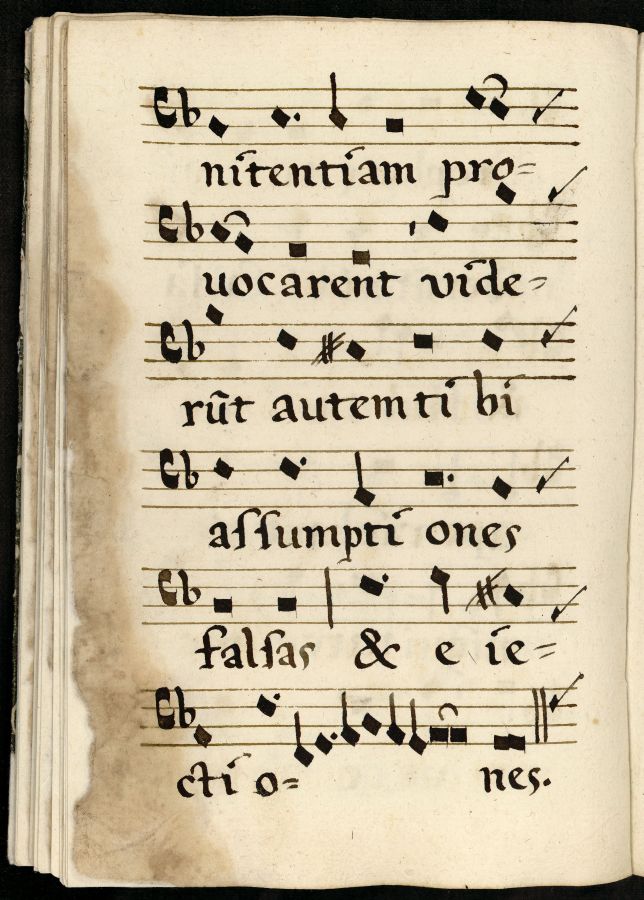 nitentiam pro=
uocarent vide=
rũt autem ti bi
aſſumpti ones
falſas & e ie=
cti o= nes.